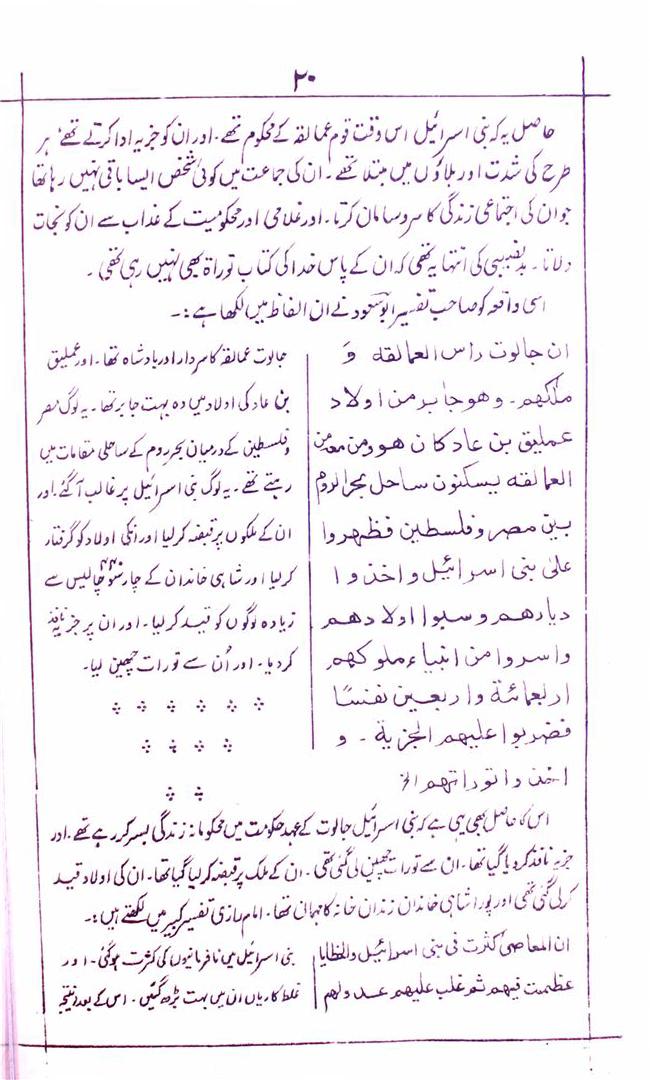 ۲۰
حاصل یہ کہ بنی اسرائیل اس وقت قوم عمالقہ کے محکوم تھے۔ اور ان کو جزیہ ادا کرتے تھے، ہر
طرح کی شدت اور بلاؤں میں مبتلا تھے۔ ان کی جماعت میں کوئی شخص ایسا باقی نہیں رہا تھا
جو ان کی اجتماعی زندگی کا سر و سامان کرتا۔ اور غلامی اور محکومیت کے عذاب سے ان کو نجات
دلاتا۔ بدنصیبی کی انتہا یہ تھی کہ ان کے پاس خدا کی کتاب توراۃ بھی نہیں رہی تھی۔
اسی واقعہ کو صاحب تفسیر ابوسعود نے ان الفاظ میں لکھا ہے:۔
ان جالوت راس العمالقه وَ
ملكهم۔ وهو جابر من اولاد
عمليق بن عاد كان هو ومن معه من
العمالقه يسكنون ساحل بحر الروم
بين مصر وفلسطين فظهروا
على بنى اسرائيل واخذوا
ديارهم وسبوا اولادهم
واسروا من ابناء ملوكهم
اربعمائة واربعين نفسًا
فضربوا عليهم الجزية۔ و
اخذوا توراتهم الخ
جالوت عمالقہ کا سردار اور بادشاہ تھا۔ اور عملیق
بن عاد کی اولاد میں وہ بہت جابر تھا۔ یہ لوگ مصر
و فلسطین کے درمیان بحر روم کے ساحلی مقامات میں
رہتے تھے۔ یہ لوگ بنی اسرائیل پر غالب آگئے۔ اور
ان کے ملکوں پر قبضہ کر لیا اور انکی اولاد کو گرفتار
کر لیا اور شاہی خاندان کے چار سو ۴۴۰ چالیس سے
زیادہ لوگوں کو قید کر لیا۔ اور ان پر جزیہ نافذ
کر دیا۔ اور اُن سے تورات چھین لیا۔
اس کا حاصل بھی یہی ہے کہ بنی اسرائیل جالوت کے عہد حکومت میں محکومانہ زندگی بسر کر رہے تھے۔ اور
جزیہ نافذ کر دیا گیا تھا۔ ان سے تورات چھین لی گئی تھی۔ ان کے ملک پر قبضہ کر لیا گیا تھا۔ ان کی اولاد قید
کر لی گئی تھی اور پورا شاہی خاندان زندان خانہ کا مہمان تھا۔ امام رازی تفسیر کبیر میں لکھتے ہیں:۔
ان المعاصى كثرت فى بنى اسرائيل والخطايا
عظمت فيهم ثم غلب عليهم عدولهم
بنی اسرائیل میں نافرمانیوں کی کثرت ہو گئی۔ اور
غلط کاریاں ان میں بہت بڑھ گئیں۔ اس کے بعد نتیجۃً